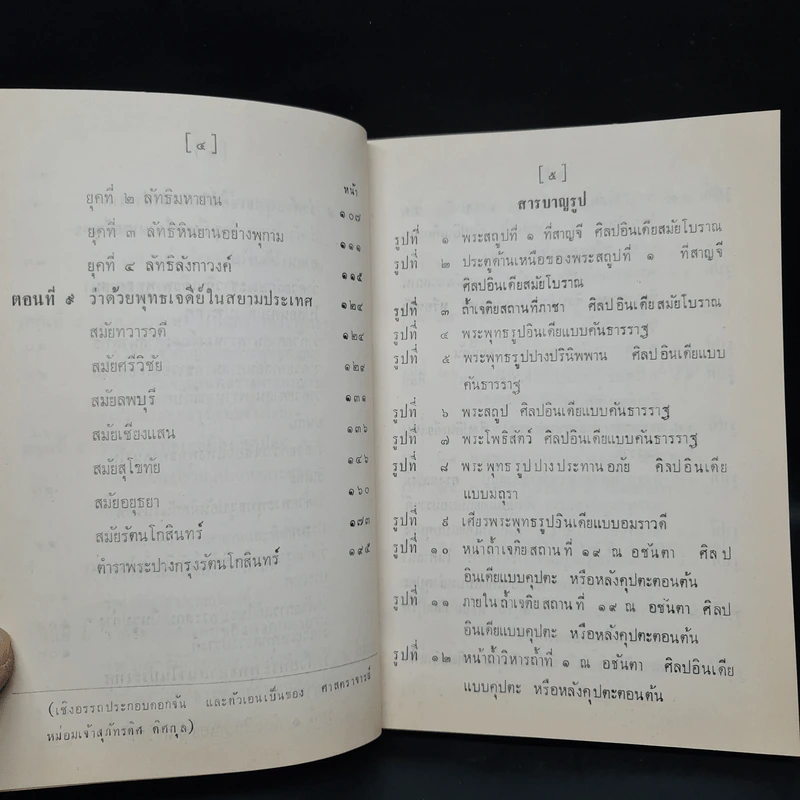 [ ๔ ]
หน้า
ยุคที่ ๒ ลัทธิมหายาน ๑๐๗
ยุคที่ ๓ ลัทธิหินยานอย่างพุกาม ๑๑๑
ยุคที่ ๔ ลัทธิลังกาวงศ์ ๑๑๕
ตอนที่ ๙ ว่าด้วยพุทธเจดีย์ในสยามประเทศ ๑๒๔
สมัยทวารวดี ๑๒๔
สมัยศรีวิชัย ๑๒๙
สมัยลพบุรี ๑๓๑
สมัยเชียงแสน ๑๓๖
สมัยสุโขทัย ๑๔๖
สมัยอยุธยา ๑๖๐
สมัยรัตนโกสินทร์ ๑๗๓
ตำราพระปางกรุงรัตนโกสินทร์ ๑๙๕
(เชิงอรรถประกอบดอกจัน และตัวเอนเป็นของ ศาสตราจารย์
หม่อมเจ้าสุภัทรดิศ ดิศกุล)
[ ๕ ]
สารบาญรูป
รูปที่ ๑ พระสถูปที่ ๑ ที่สาญจี ศิลปอินเดียสมัยโบราณ
รูปที่ ๒ ประตูด้านเหนือของพระสถูปที่ ๑ ที่สาญจี
ศิลปอินเดียสมัยโบราณ
รูปที่ ๓ ถ้ำเจติยสถานที่ภาชา ศิลปอินเดียสมัยโบราณ
รูปที่ ๔ พระพุทธรูปอินเดียแบบคันธารราฐ
รูปที่ ๕ พระพุทธรูปปางปรินิพพาน ศิลปอินเดียแบบ
คันธารราฐ
รูปที่ ๖ พระสถูป ศิลปอินเดียแบบคันธารราฐ
รูปที่ ๗ พระโพธิสัตว์ ศิลปอินเดียแบบคันธารราฐ
รูปที่ ๘ พระพุทธรูปปางประทานอภัย ศิลปอินเดีย
แบบมถุรา
รูปที่ ๙ เศียรพระพุทธรูปอินเดียแบบอมราวดี
รูปที่ ๑๐ หน้าถ้ำเจติยสถานที่ ๑๙ ณ อชันตา ศิลป
อินเดียแบบคุปตะ หรือหลังคุปตะตอนต้น
รูปที่ ๑๑ ภายในถ้ำเจติยสถานที่ ๑๙ ณ อชันตา ศิลป
อินเดียแบบคุปตะ หรือหลังคุปตะตอนต้น
รูปที่ ๑๒ หน้าถ้ำวิหารถ้ำที่ ๑ ณ อชันตา ศิลปอินเดีย
แบบคุปตะ หรือหลังคุปตะตอนต้น